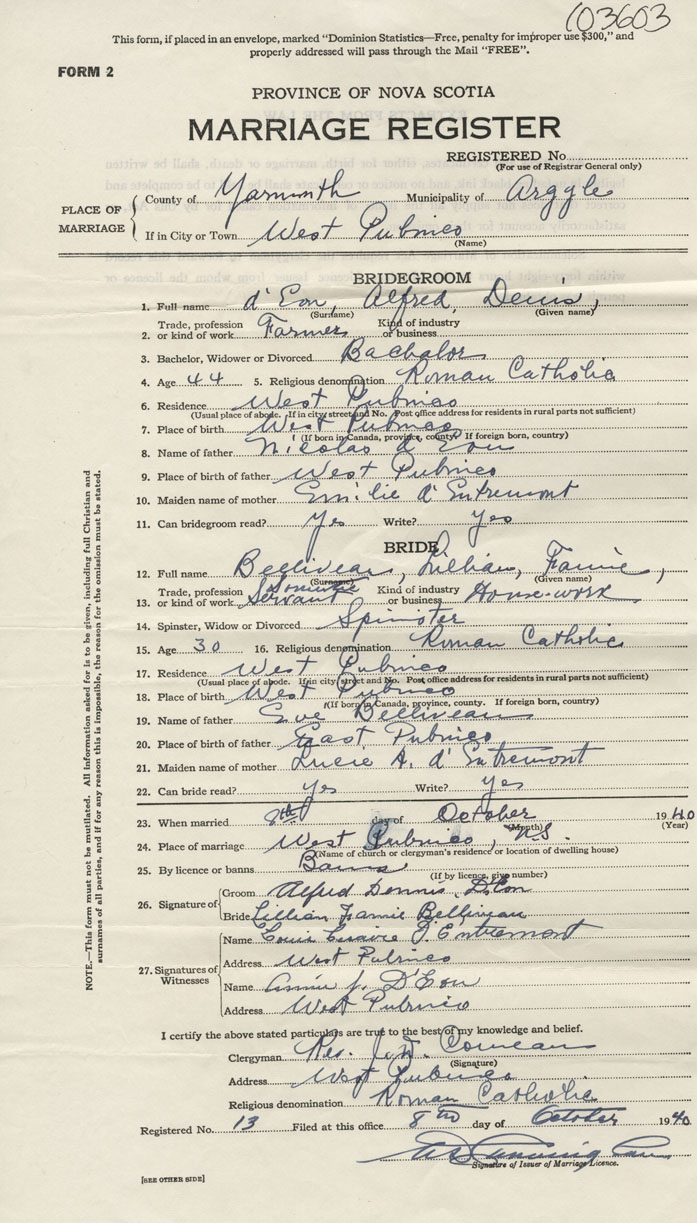 103603
This form, if placed in an envelope, marked "Dominion Statistics—Free, penalty for improper use $300," and
properly addressed will pass through the Mail "FREE".
FORM 2
PROVINCE OF NOVA SCOTIA
MARRIAGE REGISTER
REGISTERED No.
(For use of Registrar General only)
PLACE OF MARRIAGE
County of Yarmouth Municipality of Argyle
If in City or Town West Pubnico
(Name)
BRIDEGROOM
1. Full name d'Eon, Alfred, Denis,
(Surname) (Given name)
2. Trade, profession or kind of work Farmer Kind of industry or business
3. Bachelor, Widower or Divorced Bachelor
4. Age 44 5. Religious denomination Roman Catholic
6. Residence West Pubnico
(Usual place of abode. If in city street and No. Post office address for residents in rural parts not sufficient)
7. Place of birth West Pubnico
(If born in Canada, province, county. If foreign born, country)
8. Name of father Nicolas d'Eon
9. Place of birth of father West Pubnico
10. Maiden name of mother Emilie d'Entremont
11. Can bridegroom read? Yes Write? Yes
BRIDE
12. Full name Belliveau, Lillian, Fannie,
(Surname) (Given name)
13. Trade, profession or kind of work Domestic Servant Kind of industry or business House-work
14. Spinster, Widow or Divorced Spinster
15. Age 30 16. Religious denomination Roman Catholic
17. Residence West Pubnico
(Usual place of abode. If in city street and No. Post office address for residents in rural parts not sufficient)
18. Place of birth West Pubnico
(If born in Canada, province, county. If foreign born, country)
19. Name of father Belliveau
20. Place of birth of father East Pubnico
21. Maiden name of mother Lucie A. d'Entremont
22. Can bride read? Yes Write? Yes
23. When married 8th day of October 1940
(Month) (Year)
24. Place of marriage West Pubnico, N.S.
(Name of church or clergyman's residence or location of dwelling house)
25. By licence or banns Banns
(If by licence, give number)
26. Signature of
Groom Alfred Dennis D'Eon
Bride Lillian Fannie Belliveau
27. Signatures of Witnesses
Name Louis Cesaire D'Entremont
Address West Pubnico
Name Annie J. D'Eon
Address West Pubnico
I certify the above stated particulars are true to the best of my knowledge and belief.
Clergyman Rev. Comeau
(Signature)
Address West Pubnico
Religious denomination Roman Catholic
Registered No. 13 Filed at this office 8th day of October 1940
Signature of Issuer of Marriage Licence.
[SEE OTHER SIDE]
NOTE.—This form must not be mutilated. All information asked for is to be given, including full Christian and
surnames of all parties, and if for any reason this is impossible, the reason for the omission must be stated.